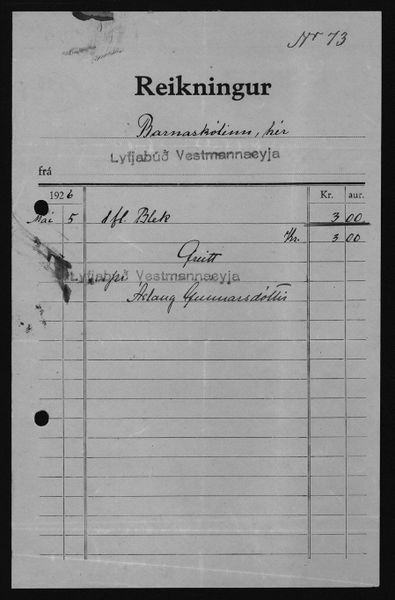 Nr 73
Reikningur
Barnaskólinn, hér
Lyfjabúð Vestmannaeyja
frá
1926 Kr. aur.
Maí 5 1 fl Blek 3 00
Kr. 3 00
Kvitt
Lyfjabúð Vestmannaeyja
Áslaug Gunnarsdóttir